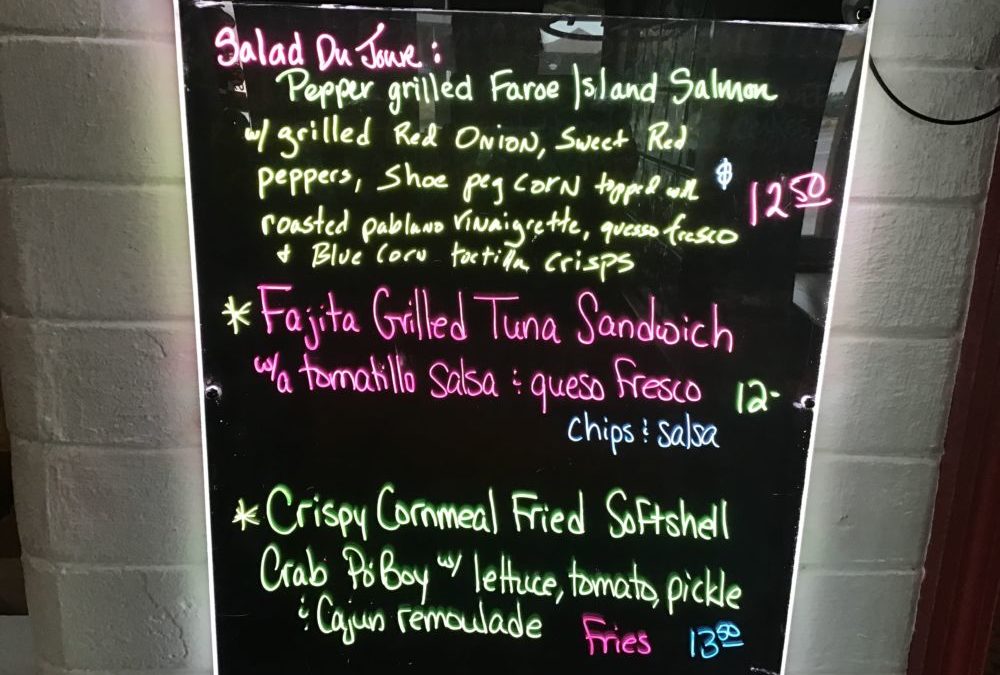 Salad Du Joure :
Pepper grilled Faroe Island Salmon
w/ grilled Red Onion, Sweet Red
peppers, Shoe peg corn topped with $ 12 50
roasted pablano vinaigrette, quesso fresco
& Blue Corn tortilla crisps
* Fajita Grilled Tuna Sandwich
w/a tomatillo salsa & queso fresco 12-
chips & salsa
* Crispy Cornmeal Fried Softshell
Crab Po'Boy w/ lettuce, tomato, pickle
& Cajun remoulade Fries 13 50